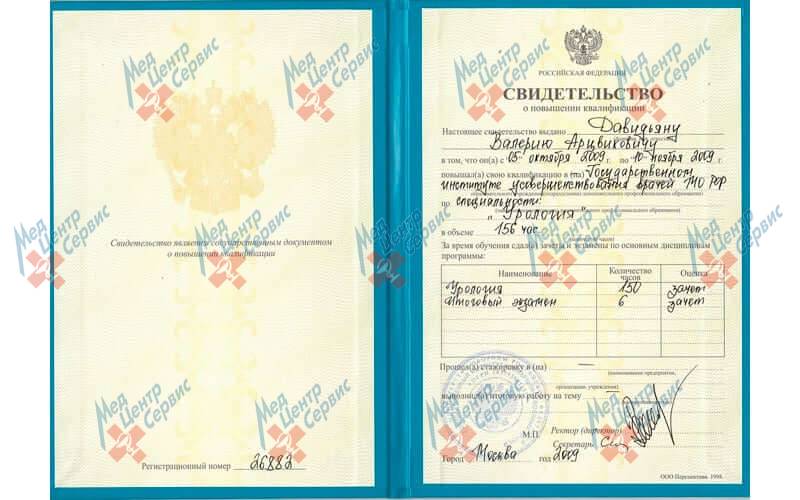 Свидетельство является государственным документом
о повышении квалификации
Регистрационный номер 26882
РОССИЙСКАЯ ФЕДЕРАЦИЯ
СВИДЕТЕЛЬСТВО
о повышении квалификации
Настоящее свидетельство выдано Давидьяну
Валерию Арцвиковичу
в том, что он(а) с 05 октября 2009 г. по 10 ноября 2009 г.
повышал(а) свою квалификацию в (на) Государственном
институте усовершенствования врачей МО РФ
по специальности:
„Урология"
в объеме 156 час.
За время обучения сдал(а) зачеты и экзамены по основным дисциплинам
программы:
Наименование Количество часов Оценка
Урология 150 зачет
Итоговый экзамен 6 зачет
Прошел(а) стажировку в (на) —
(наименование предприятия,
организации, учреждения)
выполнил(а) итоговую работу на тему
М.П.
Ректор (директор)
Секретарь
Город Москва год 2009
ООО Перспектива. 1998.
Мед Центр Сервис